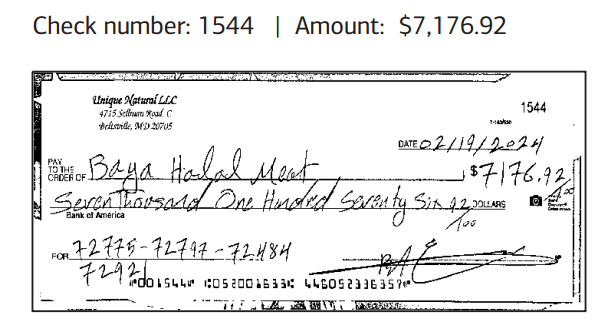 Check number: 1544 | Amount: $7,176.92
Unique Natural LLC
4715 Sellman Road, C
Beltsville, MD 20705
1544
DATE 02/19/2024
PAY TO THE ORDER OF Baya Halal Meat $ 7176.92/100
Seven Thousand One Hundred Seventy Six 92/100 DOLLARS
Bank of America
FOR 72775-72797-72484
72921
⑈001544⑈ ⑆052001633⑆ 446052336357⑈